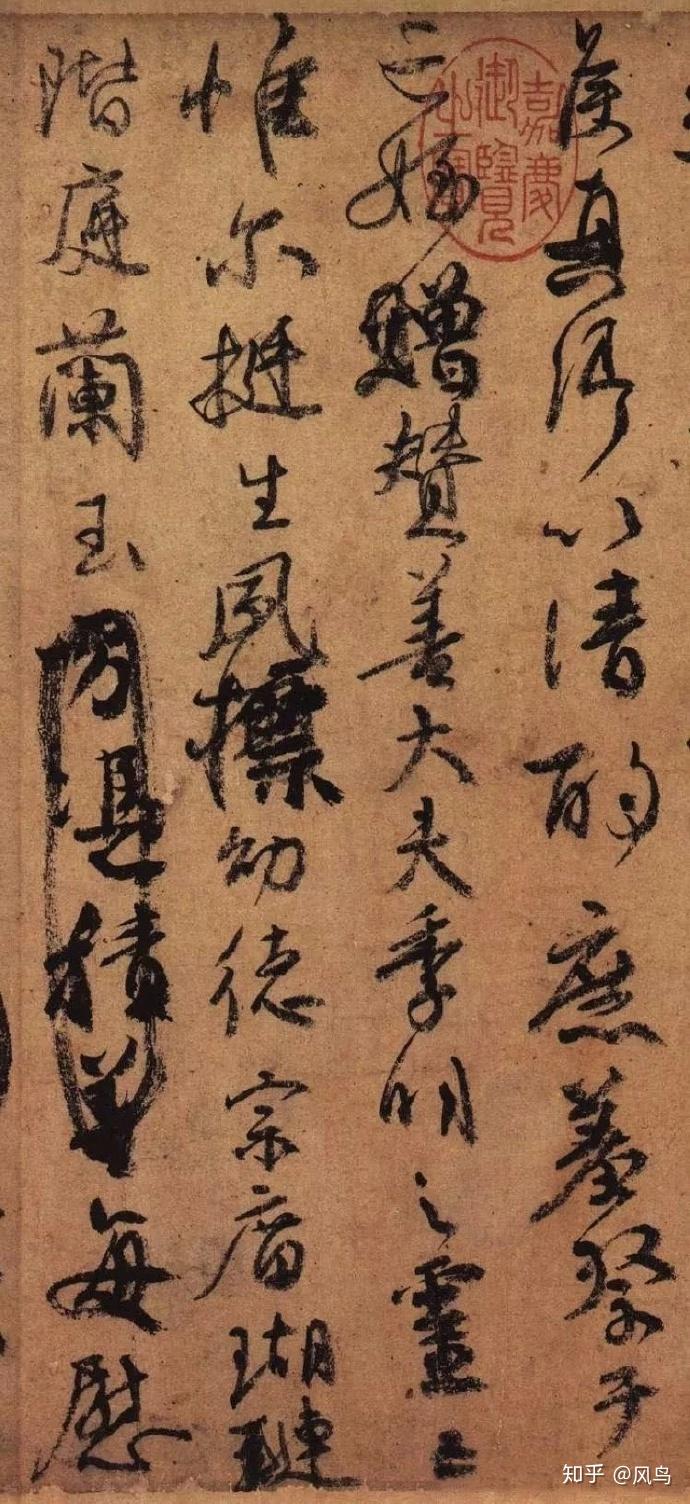 侯真卿以清酌庶羞祭于
亡姪贈賛善大夫季明之靈曰
惟尔挺生夙標幼德宗庿瑚璉
階庭蘭玉方憑積善每慰
嘉慶御覽之寶
知乎 @风鸟